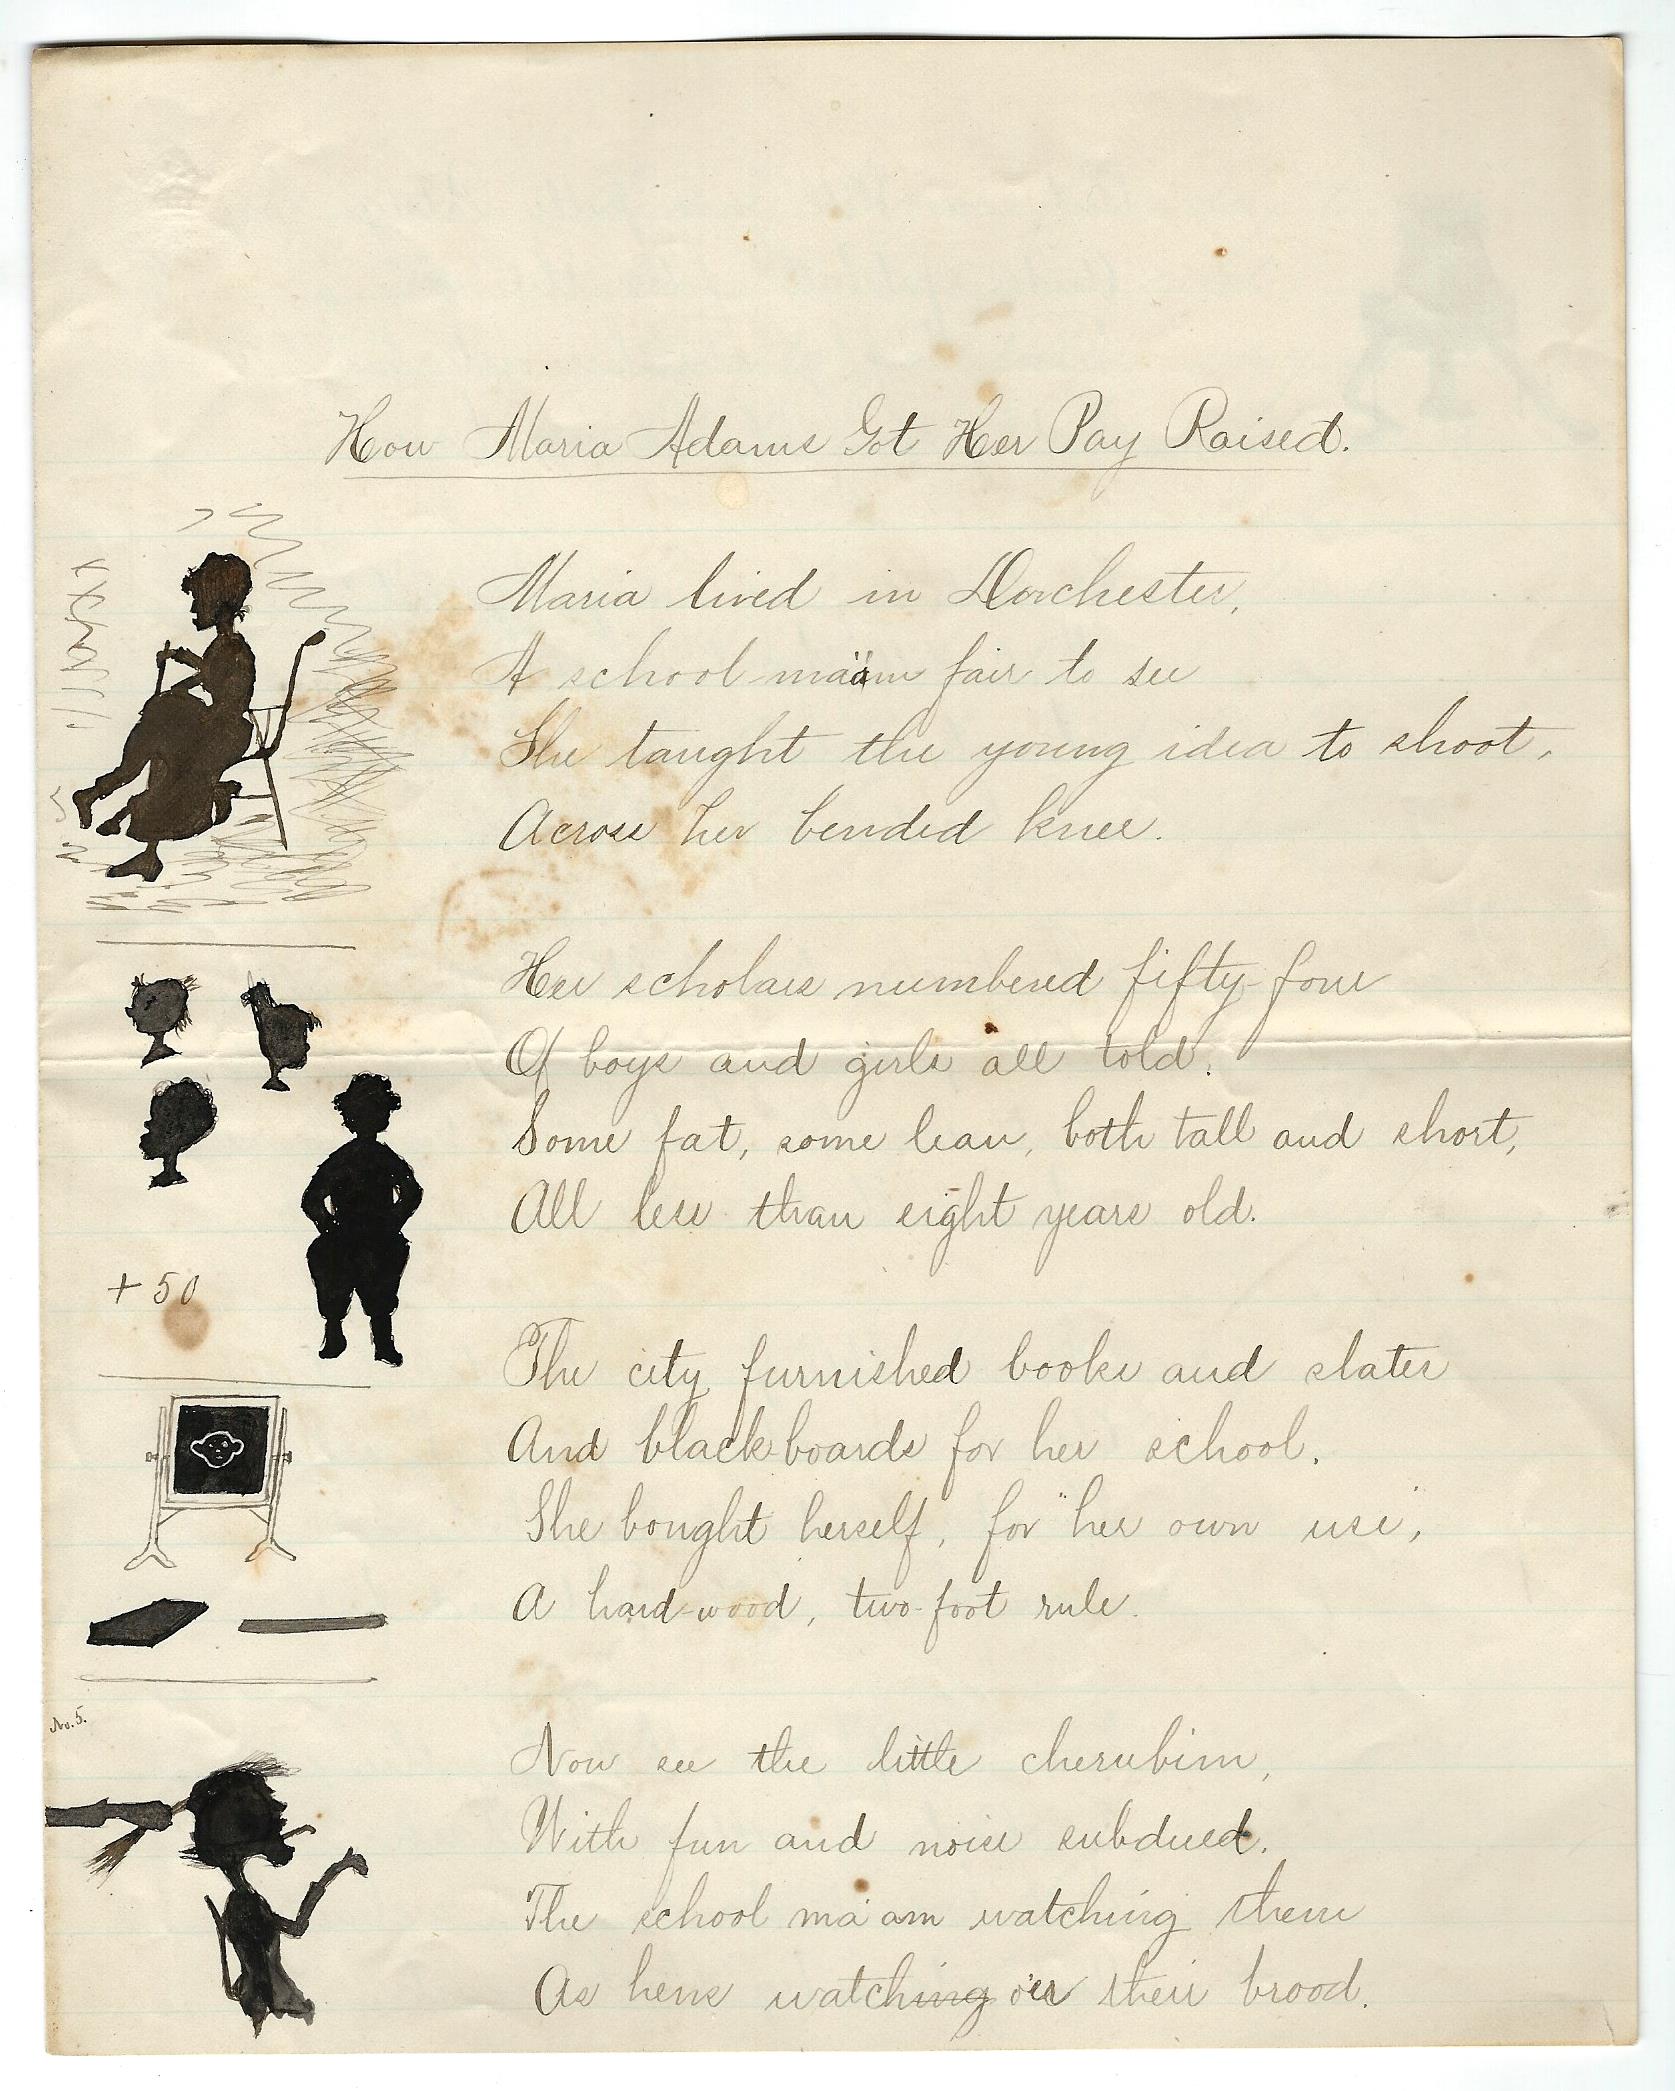 How Maria Adams Got Her Pay Raised.
Maria lived in Dorchester,
A school-ma'am fair to see
She taught the young idea to shoot,
Across her bended knee.
Her scholars numbered fifty-four
Of boys and girls all told.
Some fat, some lean, both tall and short,
All less than eight years old.
+ 50
The city furnished books and slates
And black-boards for her school.
She bought herself, for "her own use",
A hard-wood, two-foot rule.
No. 5.
Now see the little cherubim,
With fun and noise subdued.
The school ma'am watching them
As hens watching o'er their brood.